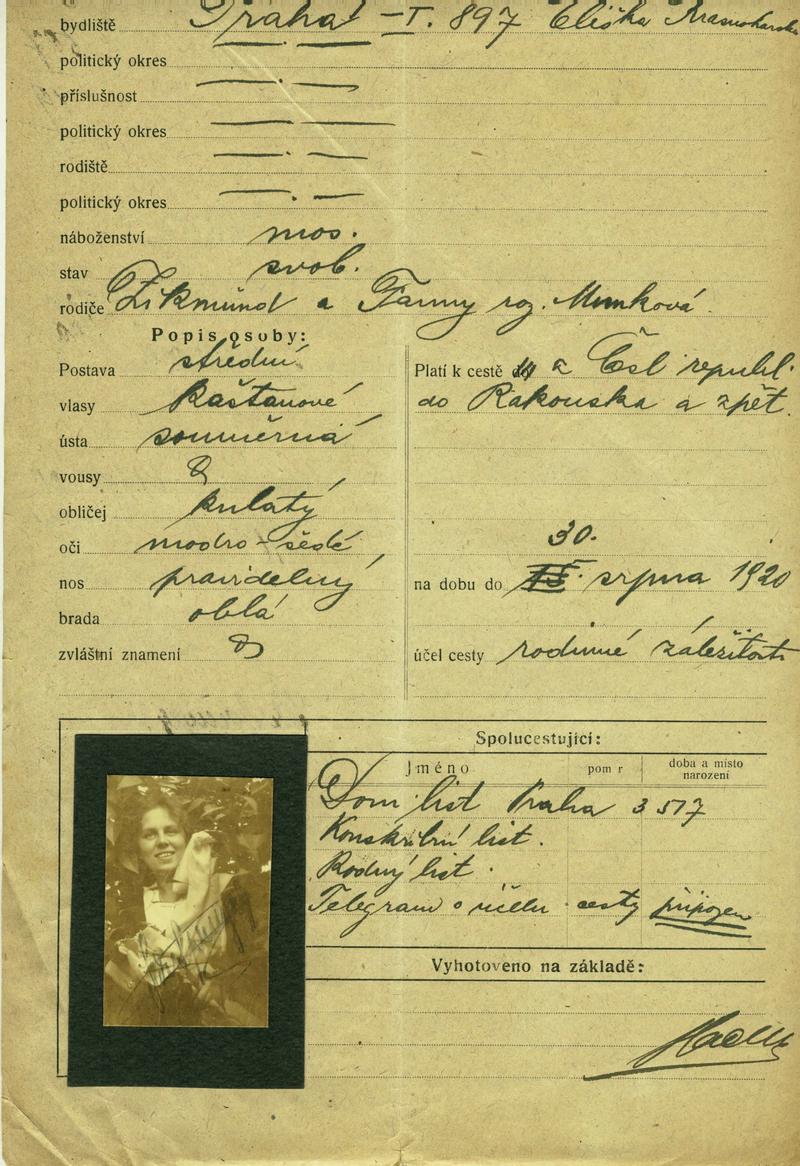 bydliště Praha - I. 897 Eliška Krásnohorská
politický okres
příslušnost
politický okres
rodiště
politický okres
náboženství mos.
stav svob.
rodiče Zikmund a Fanny roz. Munková.
Popis osoby:
Postava střední
vlasy kaštanové
ústa souměrná
vousy
obličej kulatý
oči modro-šedé
nos pravidelný
brada oblá
zvláštní znamení
Platí k cestě z Čsl republ.
do Rakouska a zpět.
30.
na dobu do 15. srpna 1920
účel cesty rodinné záležitosti
Spolucestující:
Jméno poměr doba a místo narození
Dom. list Praha 3517
Konskribní list.
Rodný list.
Telegram o účelu cesty připojen
Vyhotoveno na základě: